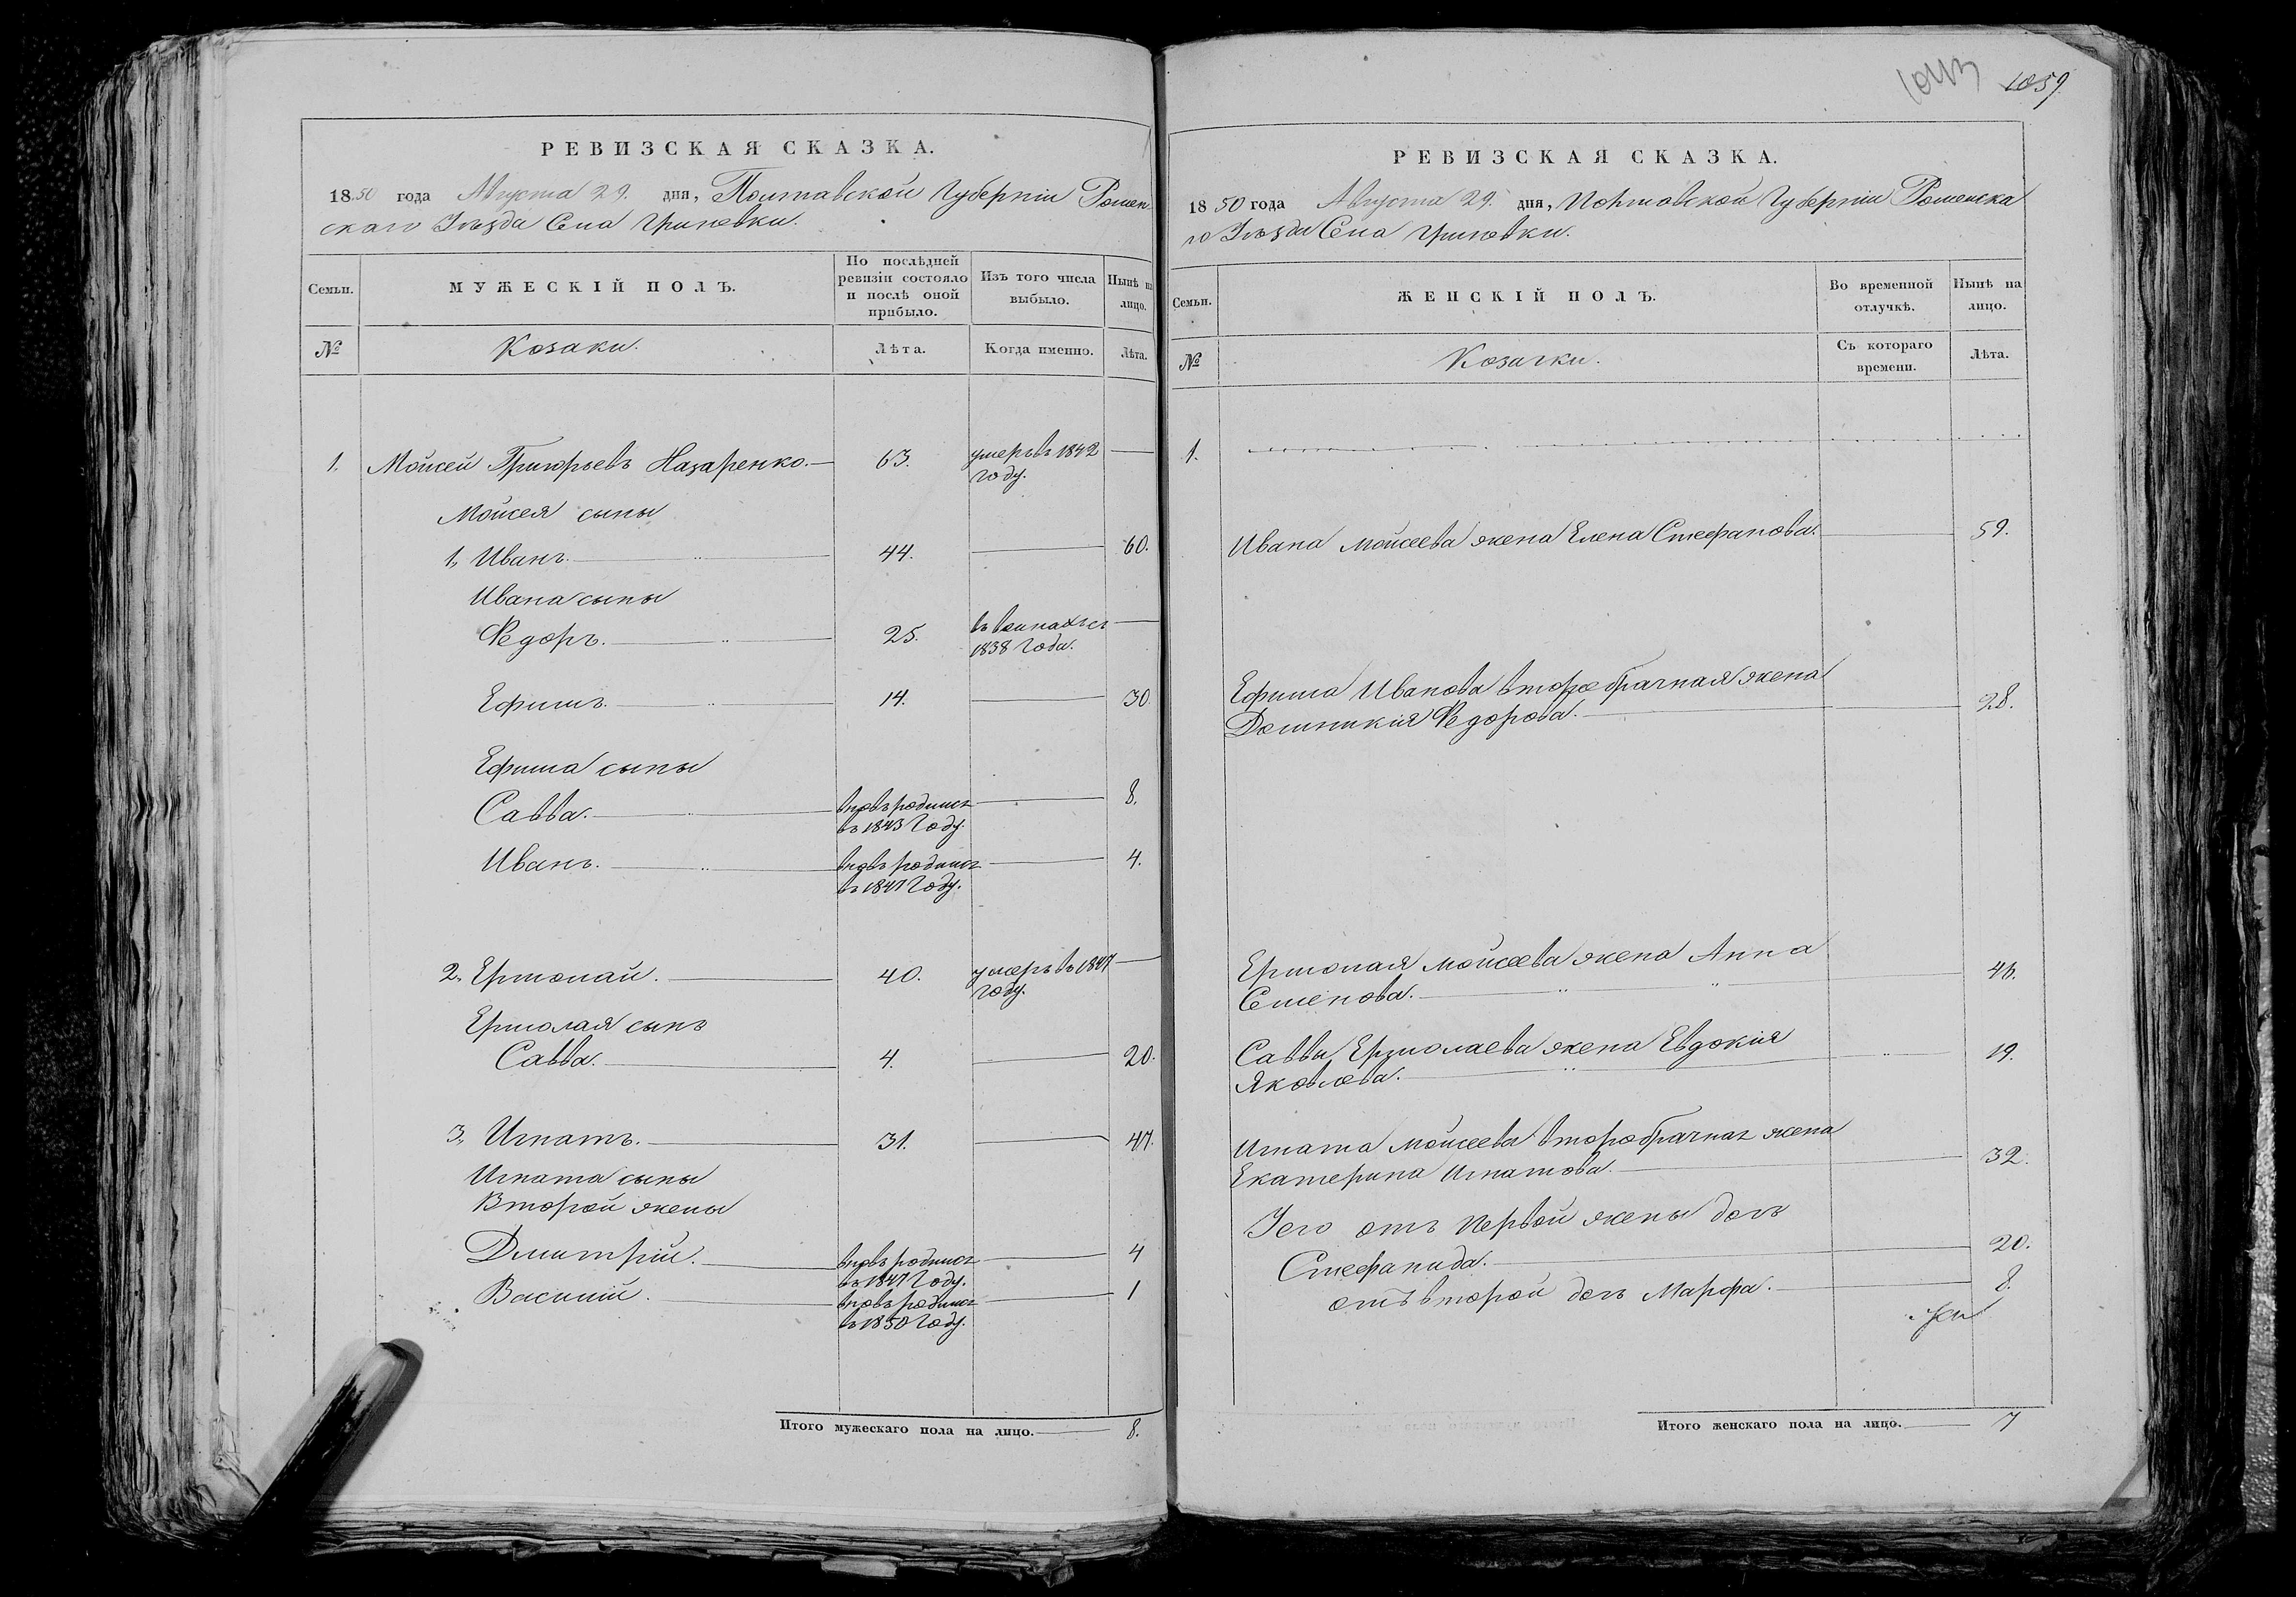 РЕВИЗСКАЯ СКАЗКА.
1850 года Августа 29. дня, Полтавской Губерніи Ромен
скаго Уѣзда Села
Семьи.
МУЖЕСКІЙ ПОЛЪ.
По послѣдней
ревизіи состояло
и послѣ оной
прибыло.
Изъ того числа
выбыло.
Нынѣ на
лицо.
№
Козаки.
Лѣта.
Когда именно.
Лѣта.
1. Мойсей Григорьевъ Назаренко. 63. умеръ въ 1842
году.
Мойсея сыны
1, Иванъ. 44. 60.
Ивана сыны
Федоръ. 25.
1838 года.
Ефимъ. 14. 30.
Ефима сыны
Савва. вновь родился 8.
въ 1843 году.
Иванъ. вновь родился 4.
въ 1847 году.
2. Ермолай. 40. умеръ въ 1847
году.
Ермолая сынъ
Савва. 4. 20.
3, Игнатъ. 31. 47.
Игната сыны
Второй жены
Дмитрій. вновь родился 4
въ 1847 году.
Василій. вновь родился 1
въ 1850 году.
Итого мужескаго пола на лицо. 8.
1059.
РЕВИЗСКАЯ СКАЗКА.
1850 года Августа 29. дня, Полтавской Губерніи Роменска
го Уѣзда Села
Семьи.
ЖЕНСКІЙ ПОЛЪ.
Во временной
отлучкѣ.
Нынѣ на
лицо.
№
Козачки.
Съ котораго
времени.
Лѣта.
1.
Ивана Мойсеева жена Елена Стефанова. 59.
Ефима Иванова второбрачная жена
Домникія Федорова. 28.
Ермолая Мойсеева жена Анна
Семенова. 46.
Саввы Ермолаева жена Евдокія
Яковлева. 19.
Игната Мойсеева второбрачная жена
Екатерина Игнатова. 32.
Его отъ первой жены дочь
Стефанида. 20.
отъ второй дочь Марфа. 8.
Итого женскаго пола на лицо. 7